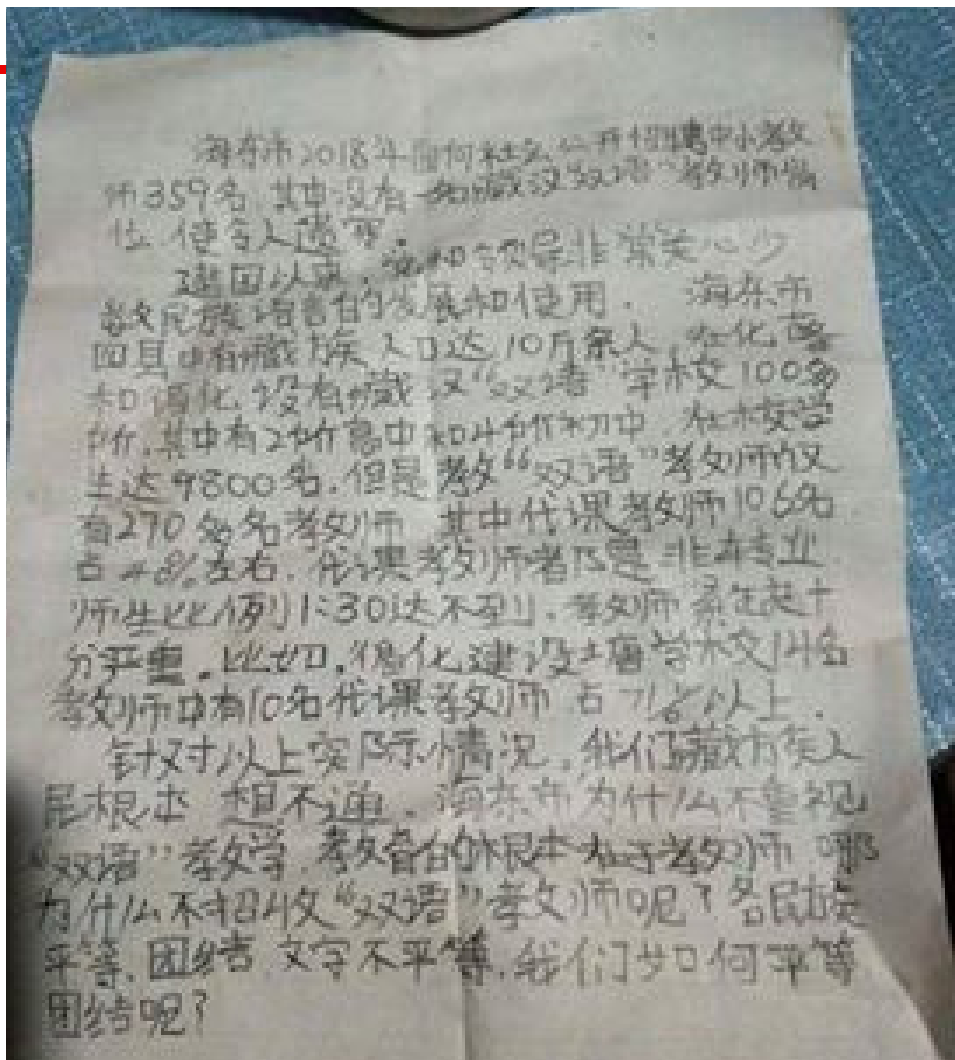 海东市2018年面向社会公开招聘中小教
师359名，其中没有一名藏汉“双语”教师岗
位，使令人遗憾。
建国以来，党和领导非常关心少
数民族语言的发展和使用。海东市
四县中有藏族人口达10万余人，在化隆
和循化，设有藏汉“双语”学校100多
所，其中有2所高中和4所初中，在校学
生达9800名，但是教“双语”教师仅
有270多名教师，其中代课教师106名
占48%左右，代课教师都是非专业
师生比例1:30达不到，教师紧缺十
分严重。比如，循化建设土塘学校14名
教师中有10名代课教师，占71%以上。
针对以上实际情况，我们藏族人
民根本想不通，海东市为什么不重视
“双语”教学，教育的根本在于教师，哪
为什么不招收“双语”教师呢？各民族
平等，团结，文字不平等，我们如何平等
团结呢？